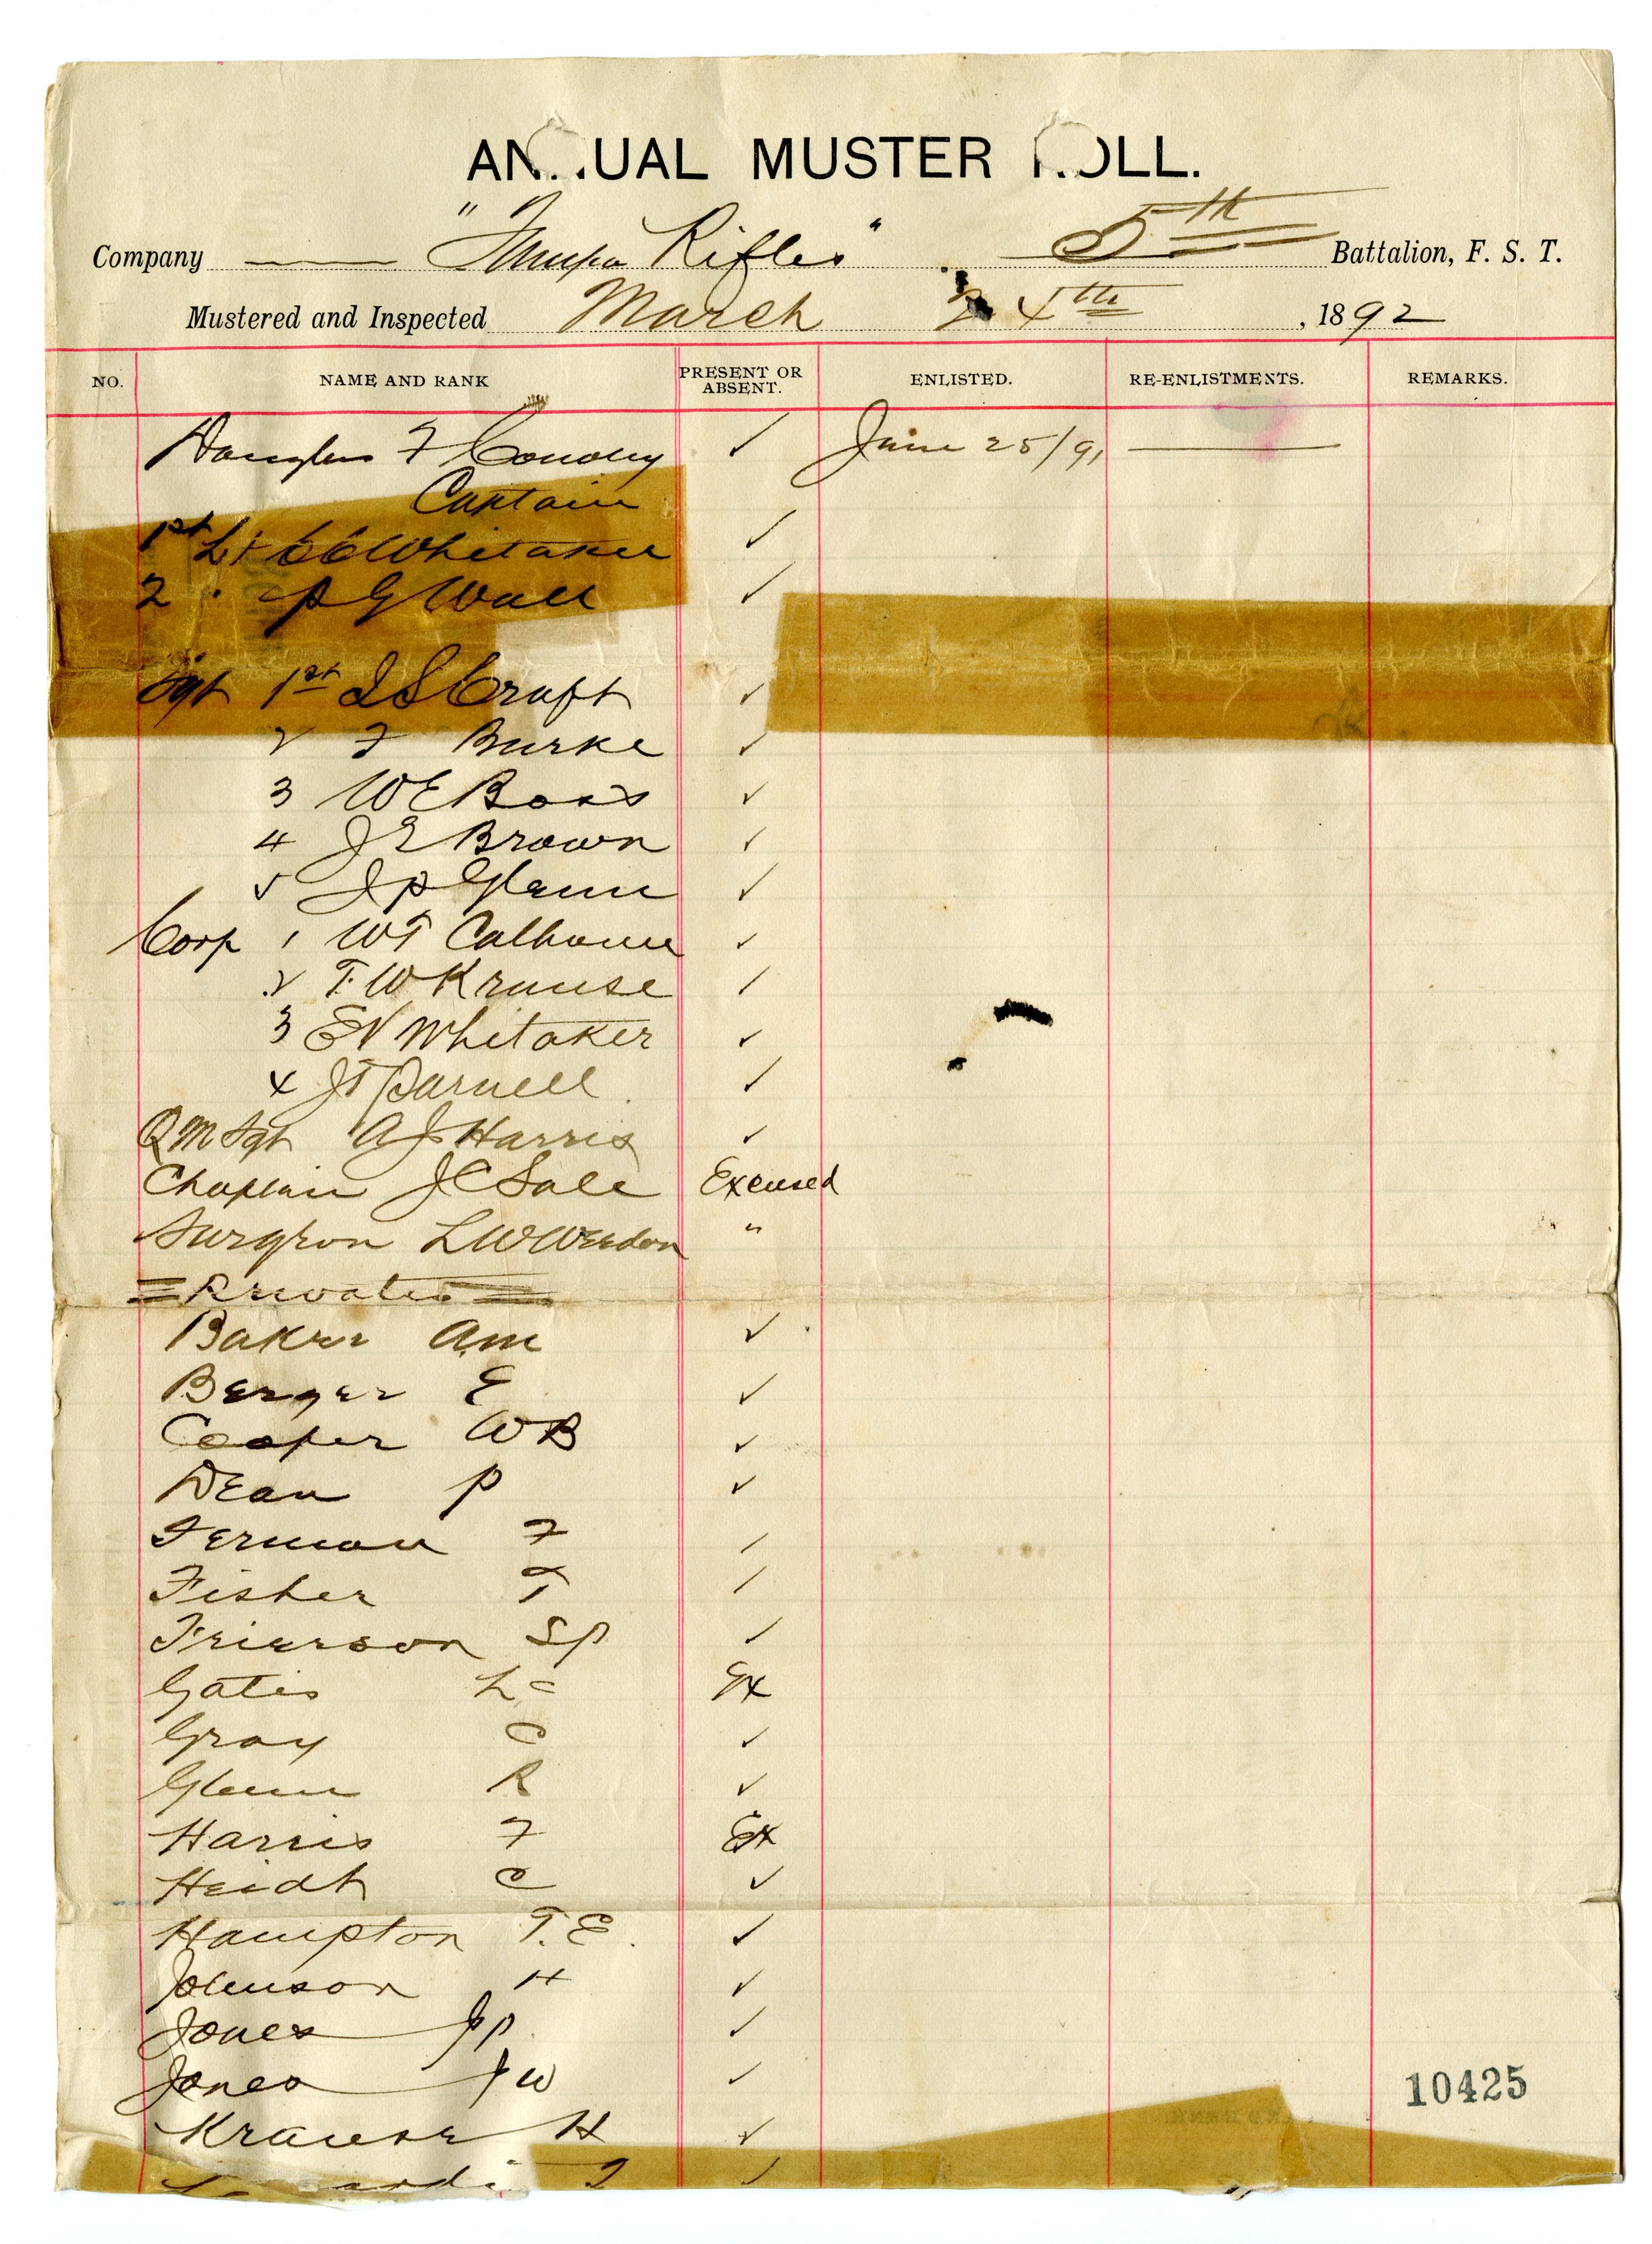 ANNUAL MUSTER ROLL.
Company "Tampa Rifles" 5th Battalion, F. S. T.
Mustered and Inspected March 4th, 1892
NO. NAME AND RANK PRESENT OR ABSENT. ENLISTED. RE-ENLISTMENTS. REMARKS.
Douglas F Conoley ✓ June 25/91
Captain
1st Lt CC Whitaker ✓
2 " P G Wall ✓
Sgt 1st I S Craft ✓
2 F Burke ✓
3 WE Boas ✓
4 J E Brown ✓
5 J P Glenn ✓
Corp 1 WT Calhoun ✓
2 T. W Krause ✓
3 EV Whitaker ✓
4 JT Barnell ✓
QM Sgt AJ Harris ✓
Chaplain JC Sale Excused
Surgeon LW Weedon "
Privates
Baker AM ✓
Berger E ✓
Cooper WB ✓
Dean P ✓
Ferman F ✓
Fisher T ✓
Frierson SP ✓
Gates LC Ex
Gray C ✓
Glenn R ✓
Harris F Ex
Heidt C ✓
Hampton T. E. ✓
Johnson H ✓
Jones JP ✓
Jones JW ✓
Krause H ✓
10425